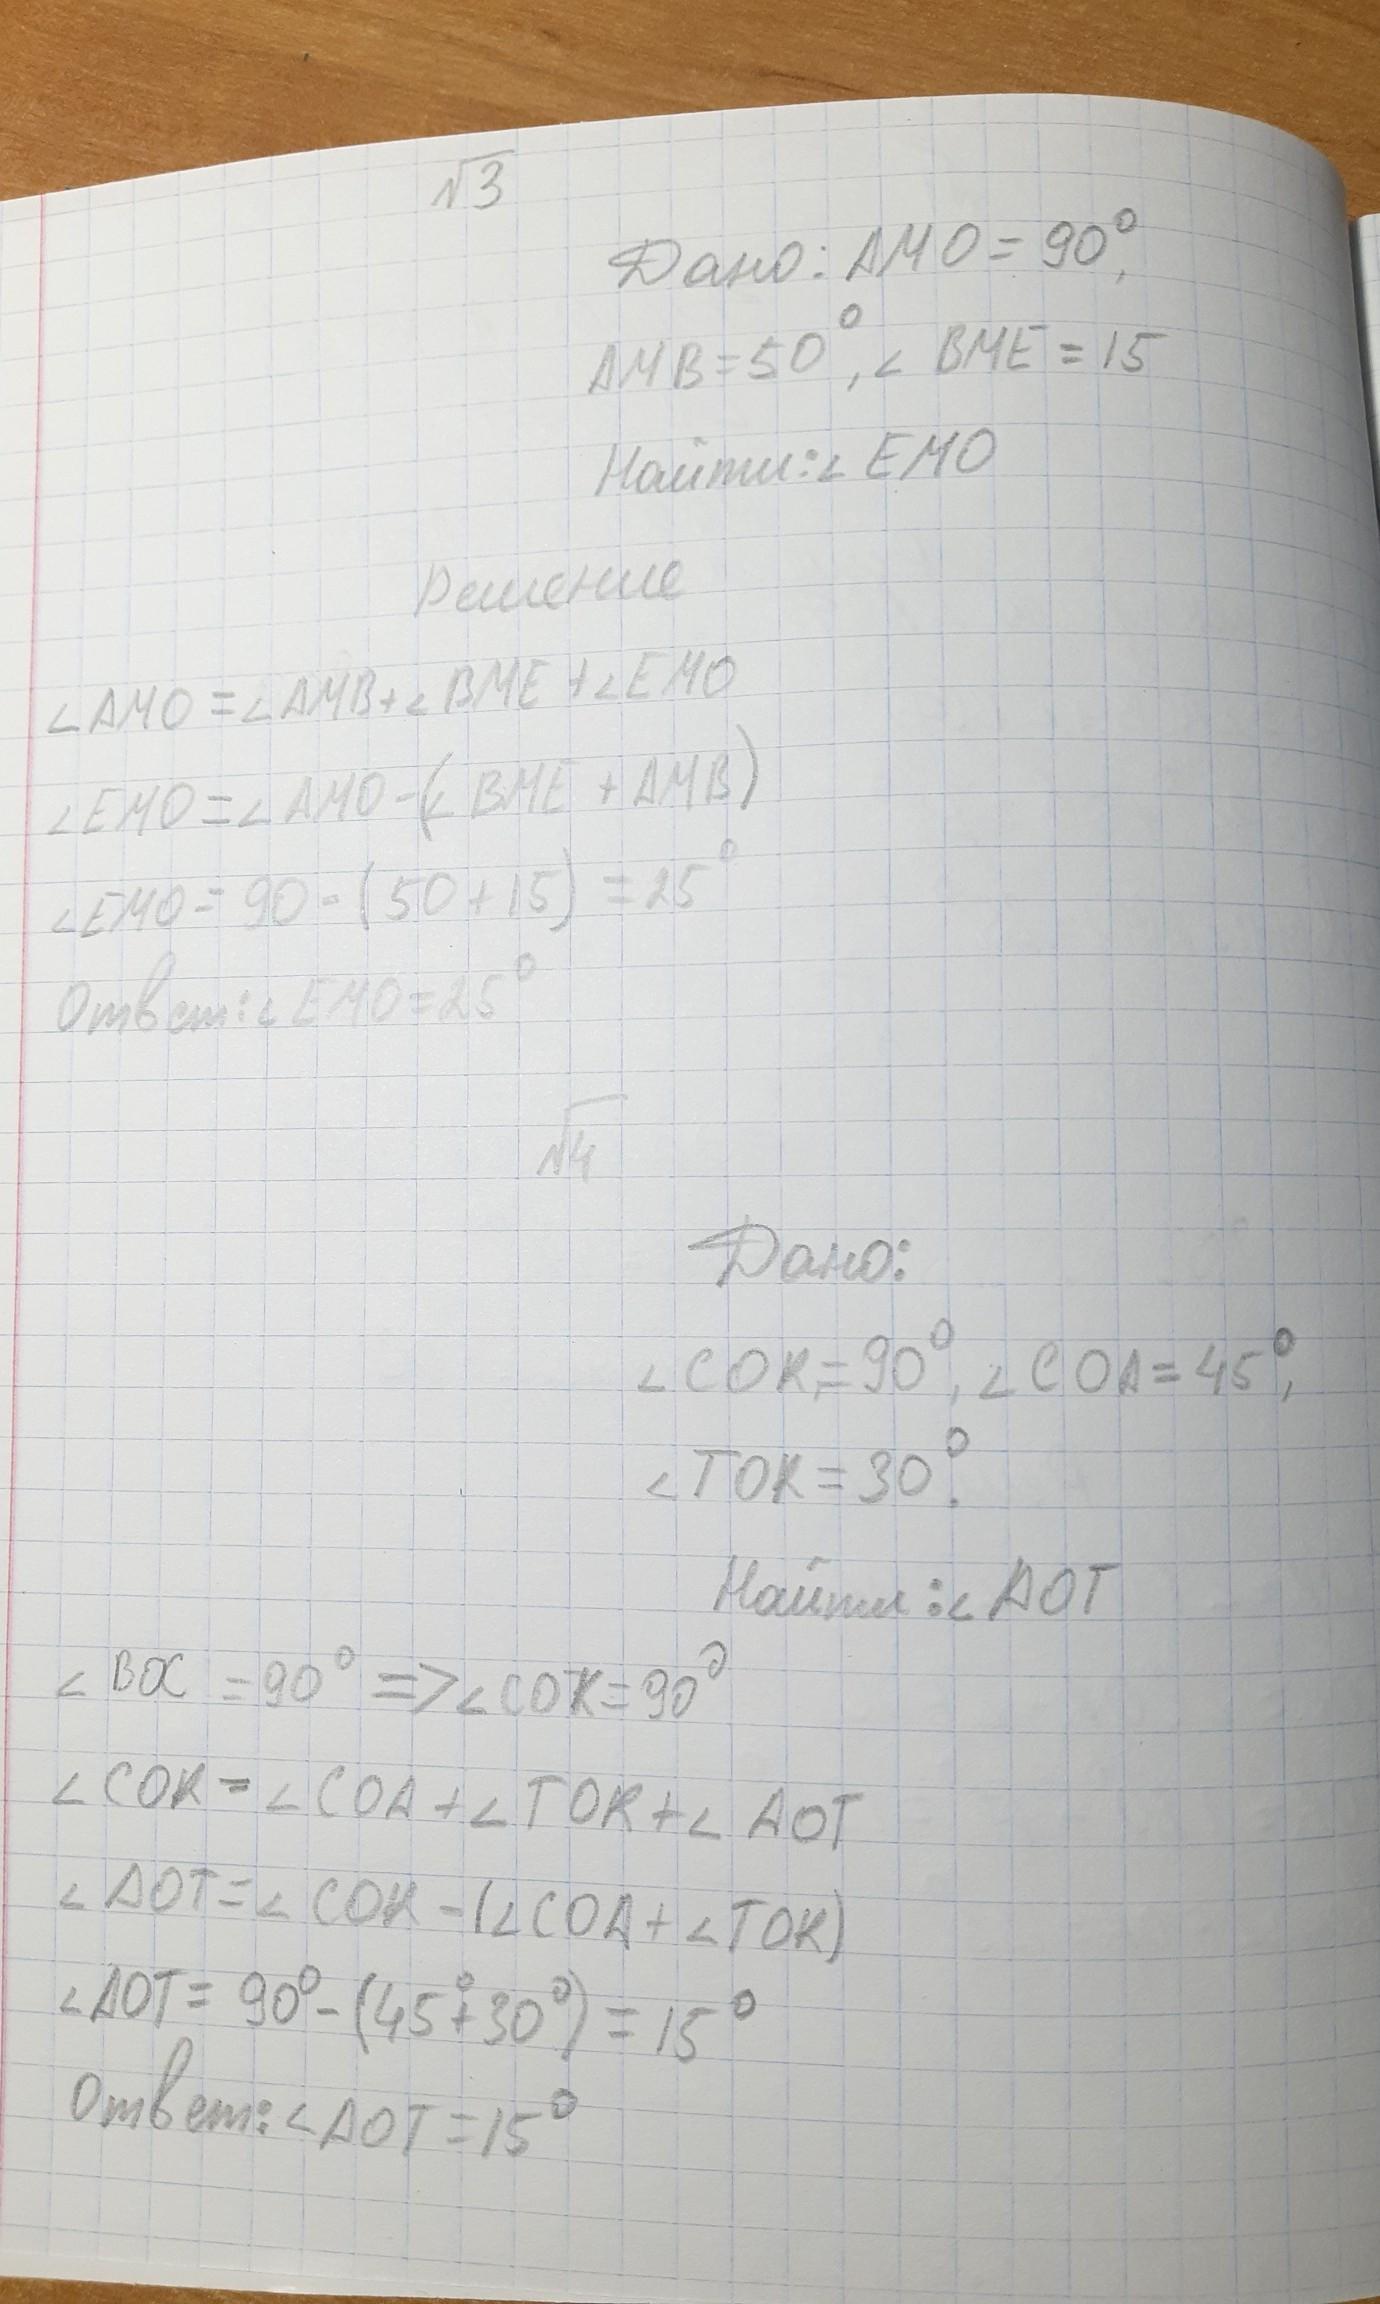 √3
Дано: AMO = 90°,
AMB = 50°, ∠ BME = 15
Найти: ∠ EMO
Решение
∠AMO = ∠AMB + ∠BME + ∠EMO
∠EMO = ∠AMO - (∠BME + AMB)
∠EMO = 90 - (50 + 15) = 25°
Ответ: ∠EMO = 25°
√4
Дано:
∠COK = 90°, ∠COA = 45°,
∠TOK = 30°.
Найти: ∠AOT
∠BOC = 90° => ∠COK = 90°
∠COK = ∠COA + ∠TOK + ∠AOT
∠AOT = ∠COK - (∠COA + ∠TOK)
∠AOT = 90° - (45° + 30°) = 15°
Ответ: ∠AOT = 15°